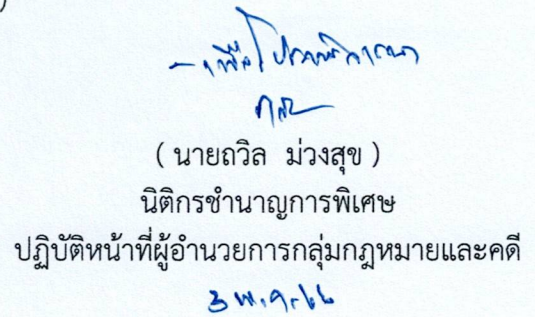 - เพื่อโปรดพิจารณา
( นายถวิล ม่วงสุข )
นิติกรชำนาญการพิเศษ
ปฏิบัติหน้าที่ผู้อำนวยการกลุ่มกฎหมายและคดี
3 พ.ค. 66